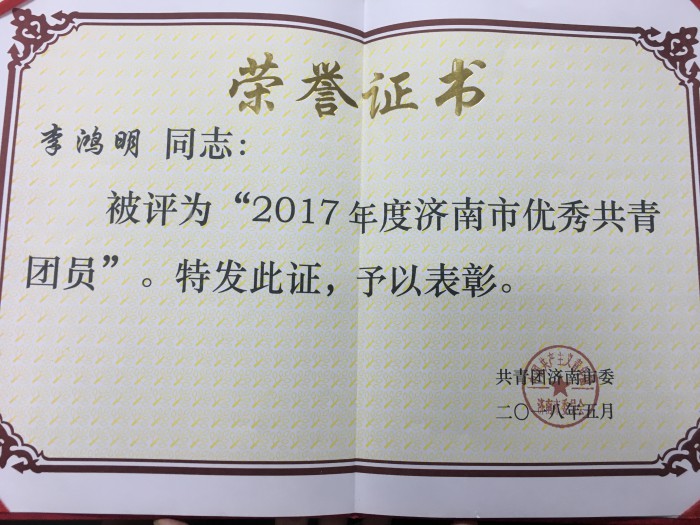 荣誉证书
李鸿明 同志：
被评为“2017年度济南市优秀共青
团员”。特发此证，予以表彰。
共青团济南市委
二〇一八年五月